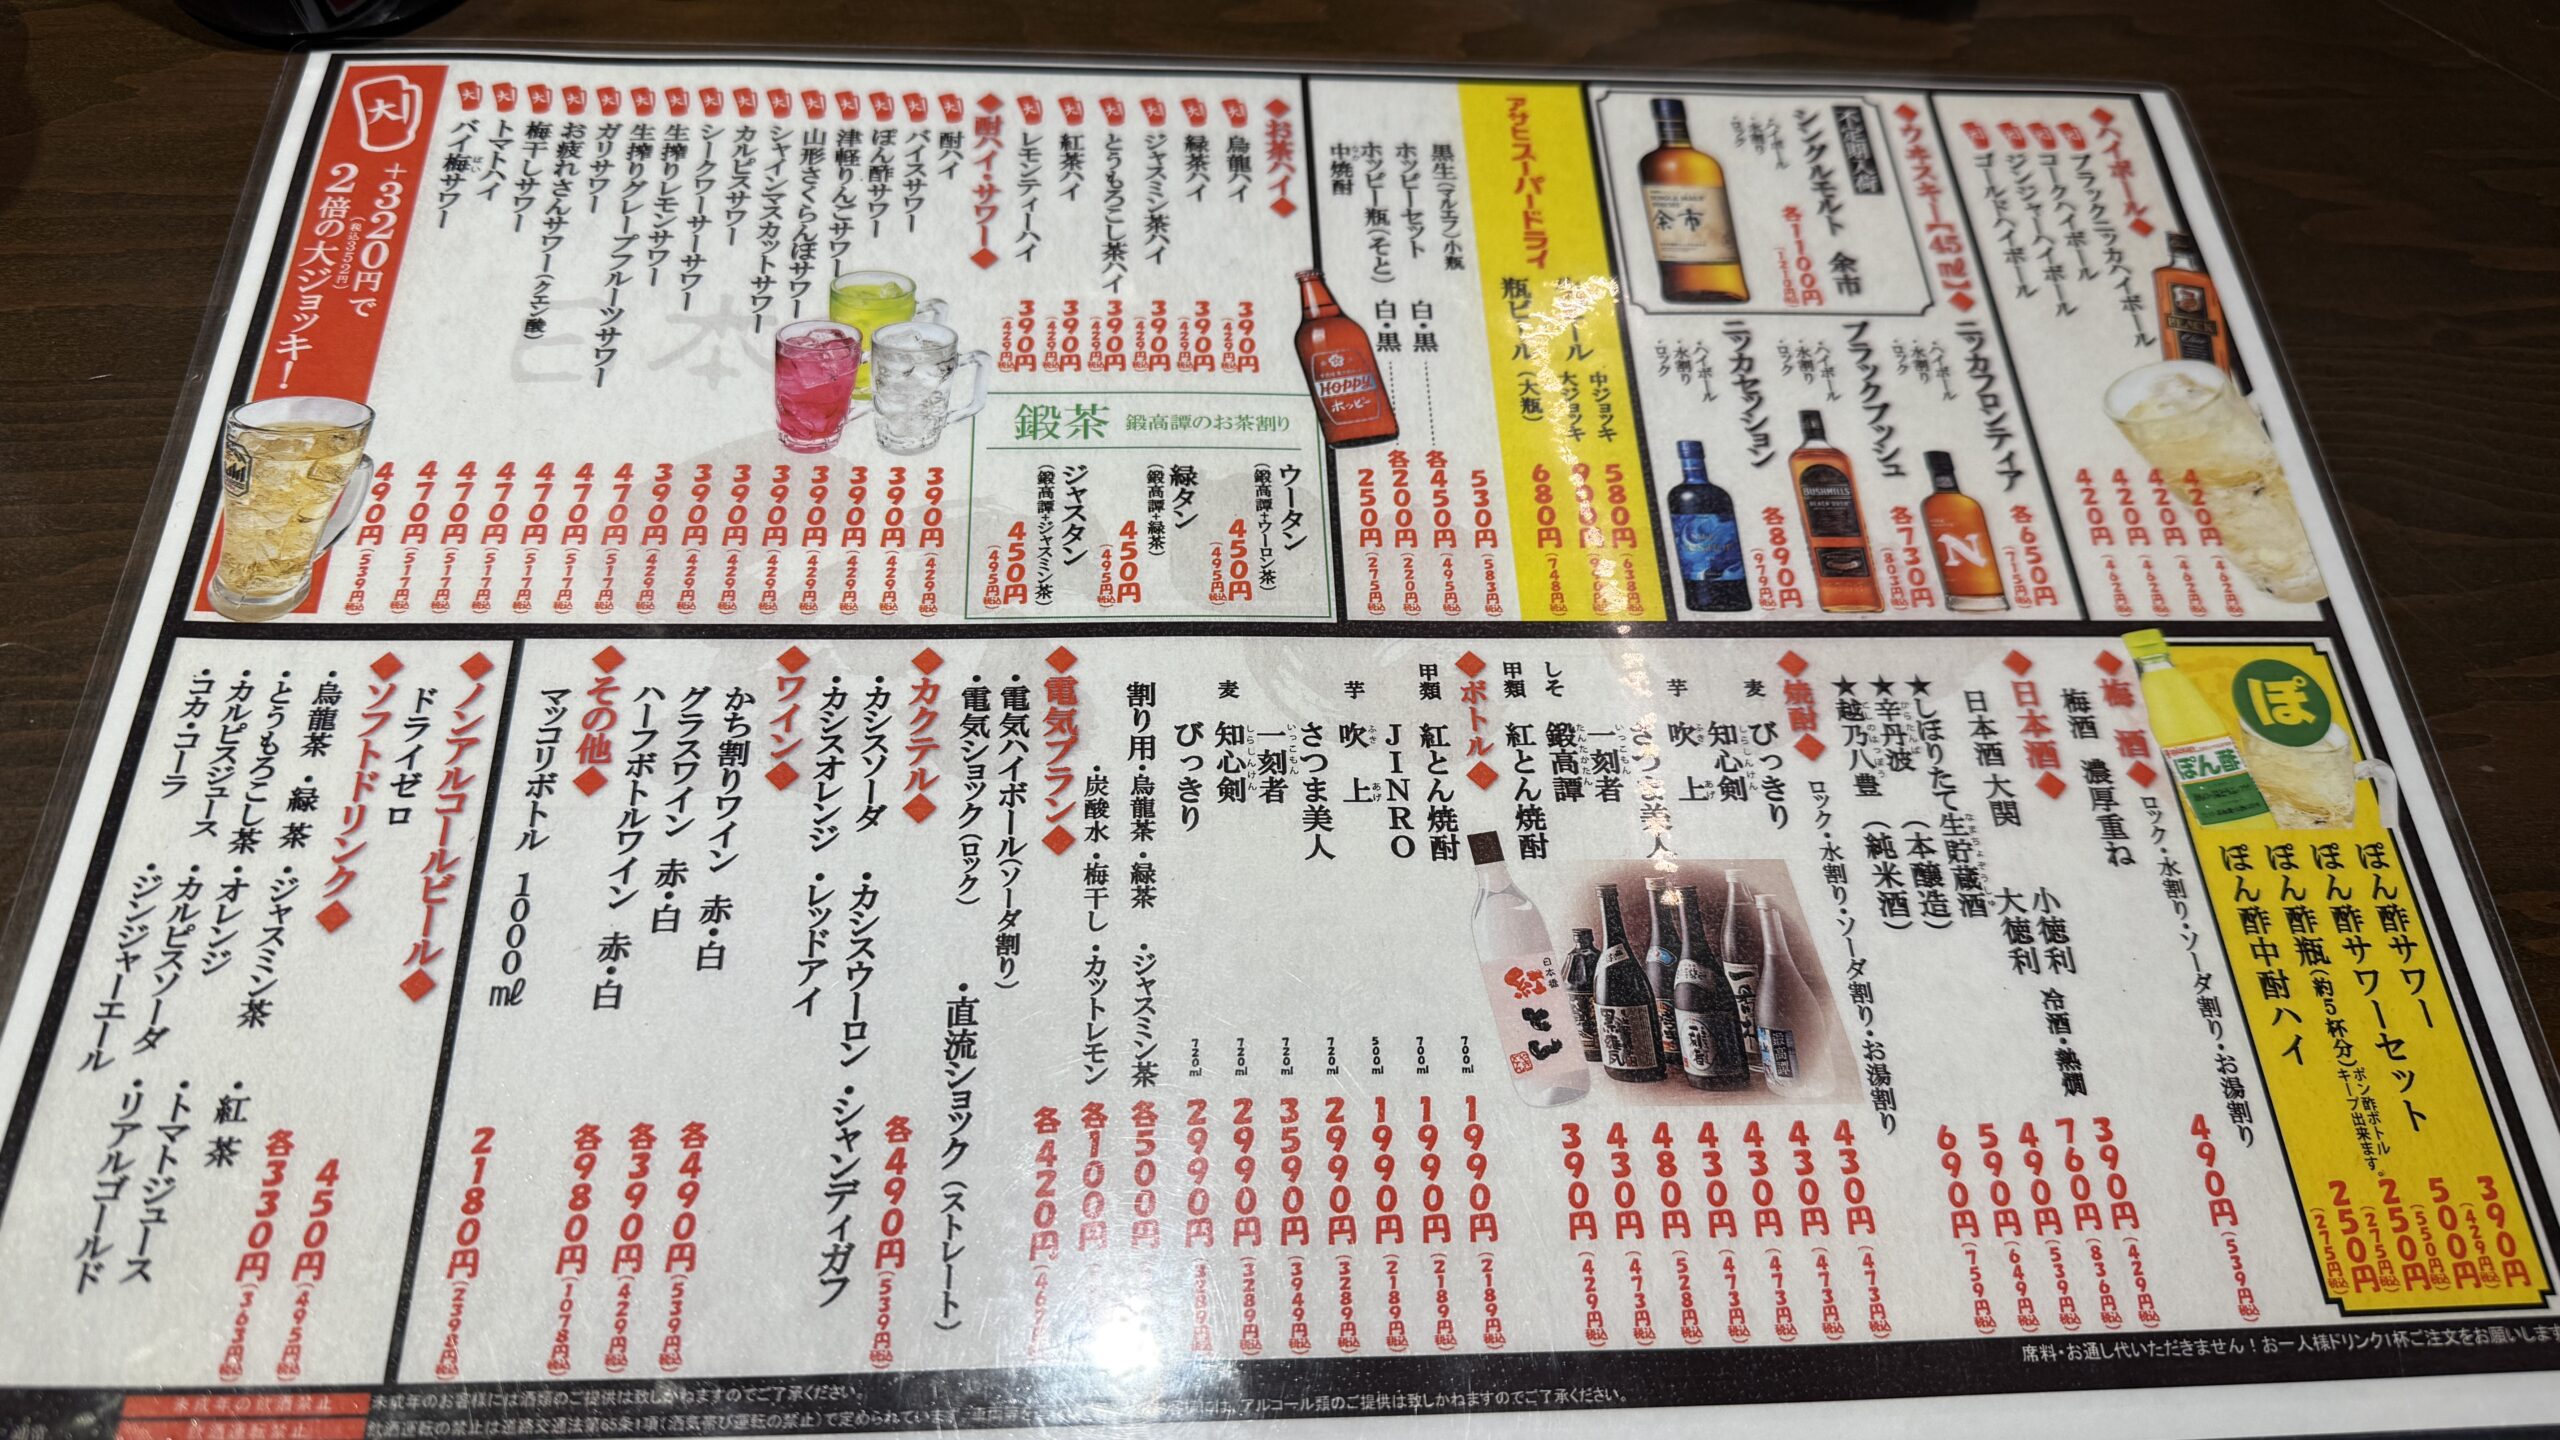 ◆ハイボール◆
ブラックニッカハイボール 420円(462円税込)
コークハイボール 420円(462円税込)
ジンジャーハイボール 420円(462円税込)
ゴールドハイボール 420円(462円税込)
◆ウヰスキー【45㎖】◆
不定期入荷
シングルモルト 余市
・ハイボール
・水割り
・ロック
各1100円
(1210円税込)
ニッカフロンティア
・ハイボール
・水割り
・ロック
各650円
(715円税込)
ブラックブッシュ
・ハイボール
・水割り
・ロック
各730円
(803円税込)
ニッカセッション
・ハイボール
・水割り
・ロック
各890円
(979円税込)
アサヒスーパードライ
中ジョッキ 580円(638円税込)
大ジョッキ
瓶ビール(大瓶) 680円(748円税込)
黒生(マルエフ)小瓶 530円(583円税込)
ホッピーセット 白・黒 各450円(495円税込)
ホッピー瓶(そと) 白・黒 各200円(220円税込)
中焼酎 250円(275円税込)
HOPPY
ホッピー
◆お茶ハイ◆
大 烏龍ハイ 390円(429円税込)
大 緑茶ハイ 390円(429円税込)
大 ジャスミン茶ハイ 390円(429円税込)
大 とうもろこし茶ハイ 390円(429円税込)
大 紅茶ハイ 390円(429円税込)
大 レモンティーハイ 390円(429円税込)
鍛茶 鍛高譚のお茶割り
ウータン
(鍛高譚+ウーロン茶)
450円
(495円税込)
緑タン
(鍛高譚+緑茶)
450円
(495円税込)
ジャスタン
(鍛高譚+ジャスミン茶)
450円
(495円税込)
◆酎ハイ・サワー◆
大 酎ハイ 390円(429円税込)
大 バイスサワー 390円(429円税込)
大 ぽん酢サワー 390円(429円税込)
大 津軽りんごサワー 390円(429円税込)
大 山形さくらんぼサワー 390円(429円税込)
大 シャインマスカットサワー 390円(429円税込)
大 カルピスサワー 390円(429円税込)
大 シークワーサーサワー 390円(429円税込)
大 生搾りレモンサワー 470円(517円税込)
大 生搾りグレープフルーツサワー 470円(517円税込)
大 ガリサワー 470円(517円税込)
大 お疲れさんサワー(クエン酸) 470円(517円税込)
大 梅干しサワー 470円(517円税込)
大 トマトハイ 470円(517円税込)
大 バイ梅サワー 490円(539円税込)
大
+320円で
(税込352円)
2倍の大ジョッキ!
ぽ
ぽん酢
ぽん酢サワー 390円(429円税込)
ぽん酢サワーセット 500円(550円税込)
ぽん酢瓶(約5杯分) ポン酢ボトルキープ出来ます。 250円(275円税込)
ぽん酢中酎ハイ 250円(275円税込)
◆梅 酒◆
ロック・水割り・ソーダ割り・お湯割り
梅酒 濃厚重ね 490円(539円税込)
◆日本酒◆
日本酒 大関 冷酒・熱燗
小徳利 390円(429円税込)
大徳利 760円(836円税込)
★しぼりたて生貯蔵酒 490円(539円税込)
★辛丹波(本醸造) 590円(649円税込)
★越乃八豊(純米酒) 690円(759円税込)
◆焼酎◆
ロック・水割り・ソーダ割り・お湯割り
麦 びっきり 430円(473円税込)
知心剣 430円(473円税込)
芋 吹上 430円(473円税込)
さつま美人 430円(473円税込)
一刻者 480円(528円税込)
しそ 鍛高譚 430円(473円税込)
甲類 紅とん焼酎 390円(429円税込)
◆ボトル◆
甲類 紅とん焼酎 700ml 1990円(2189円税込)
JINRO 700ml 1990円(2189円税込)
芋 吹上 500ml 1990円(2189円税込)
さつま美人 720ml 2990円(3289円税込)
一刻者 720ml 3590円(3949円税込)
麦 知心剣 720ml 2990円(3289円税込)
びっきり 720ml 2990円(3289円税込)
割り用・烏龍茶・緑茶 ・ジャスミン茶 各500円
・炭酸水・梅干し・カットレモン 各100円
◆電気ブラン◆
・電気ハイボール(ソーダ割り)
・電気ショック(ロック) ・直流ショック(ストレート)
各420円
◆カクテル◆
・カシスソーダ ・カシスウーロン ・シャンディガフ
・カシスオレンジ ・レッドアイ
各490円(539円税込)
◆ワイン◆
かち割りワイン 赤・白 各490円(539円税込)
グラスワイン 赤・白 各390円(429円税込)
ハーフボトルワイン 赤・白 各980円(1078円税込)
◆その他◆
マッコリボトル 1000㎖ 2180円(2398円税込)
◆ノンアルコールビール◆
ドライゼロ 450円(495円税込)
◆ソフトドリンク◆
各330円(363円税込)
・烏龍茶 ・緑茶 ・ジャスミン茶 ・紅茶
・とうもろこし茶 ・オレンジ ・トマトジュース
・カルピスジュース ・カルピスソーダ ・リアルゴールド
・コカ・コーラ ・ジンジャーエール
席料・お通し代いただきません!お一人様ドリンク1杯ご注文をお願いします
未成年の飲酒禁止 未成年のお客様には酒類のご提供は致しかねますのでご了承ください。
飲酒運転の禁止 飲酒運転の禁止は道路交通法第65条1項(酒気帯び運転の禁止)で定められています。 には、アルコール類のご提供は致しかねますのでご了承ください。